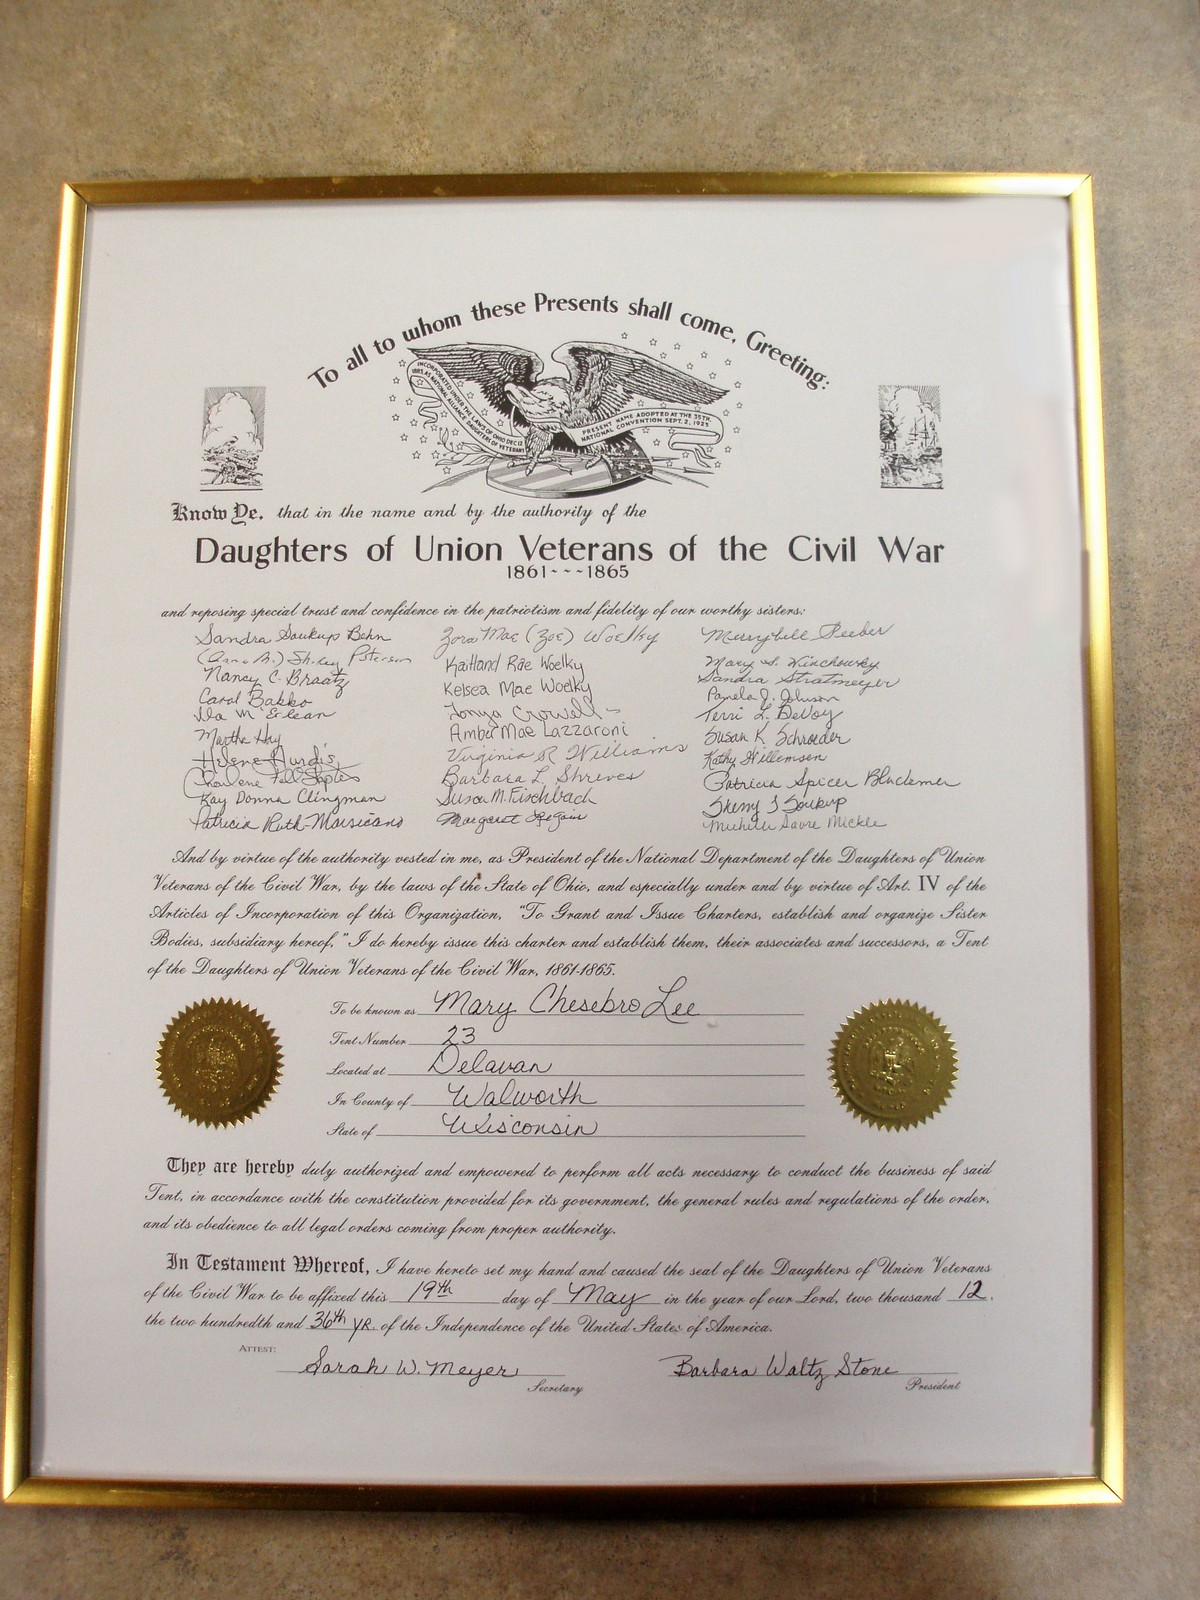 To all to whom these Presents shall come, Greeting:
INCORPORATED UNDER THE LAWS OF OHIO DEC 12
1885 AS NATIONAL ALLIANCE DAUGHTERS OF VETERANS
PRESENT NAME ADOPTED AT THE 35TH
NATIONAL CONVENTION SEPT. 2, 1925
Know Ye, that in the name and by the authority of the
Daughters of Union Veterans of the Civil War
1861---1865
and reposing special trust and confidence in the patriotism and fidelity of our worthy sisters:
Sandra Soukup Behn
(Anne M.) Peterson
Nancy C. Braatz
Carol Bakko
Ila
Martha Hay
Helene Hurdis
Charlene
Kay Donna Clingman
Patricia Ruth-Marsicano
Zora Mae (Zoe) Woelky
Kaitland Rae Woelky
Kelsea Mae Woelky
Tonya Crowell
Amber Mae Lazzaroni
Virginia R Williams
Barbara L. Shreves
Susan M. Fischbach
Margaret
Merrybell
Mary S.
Sandra Stratmeyer
Pamela J. Johnson
Terri L. DeVoy
Susan K Schroeder
Kathy Willemsen
Patricia Spicer
Sherry J Soukup
Mickle
And by virtue of the authority vested in me, as President of the National Department of the Daughters of Union
Veterans of the Civil War, by the laws of the State of Ohio, and especially under and by virtue of Art. IV of the
Articles of Incorporation of this Organization, "To Grant and Issue Charters, establish and organize Sister
Bodies, subsidiary hereof," I do hereby issue this charter and establish them, their associates and successors, a Tent
of the Daughters of Union Veterans of the Civil War, 1861-1865.
To be known as Mary Chesebro Lee
Tent Number 23
Located at Delavan
In County of Walworth
State of Wisconsin
They are hereby duly authorized and empowered to perform all acts necessary to conduct the business of said
Tent, in accordance with the constitution provided for its government, the general rules and regulations of the order,
and its obedience to all legal orders coming from proper authority.
In Testament Whereof, I have hereto set my hand and caused the seal of the Daughters of Union Veterans
of the Civil War to be affixed this 19th day of May in the year of our Lord, two thousand 12,
the two hundredth and 36th YR. of the Independence of the United States of America.
ATTEST:
Sarah W. Meyer Barbara Waltz Stone
Secretary President